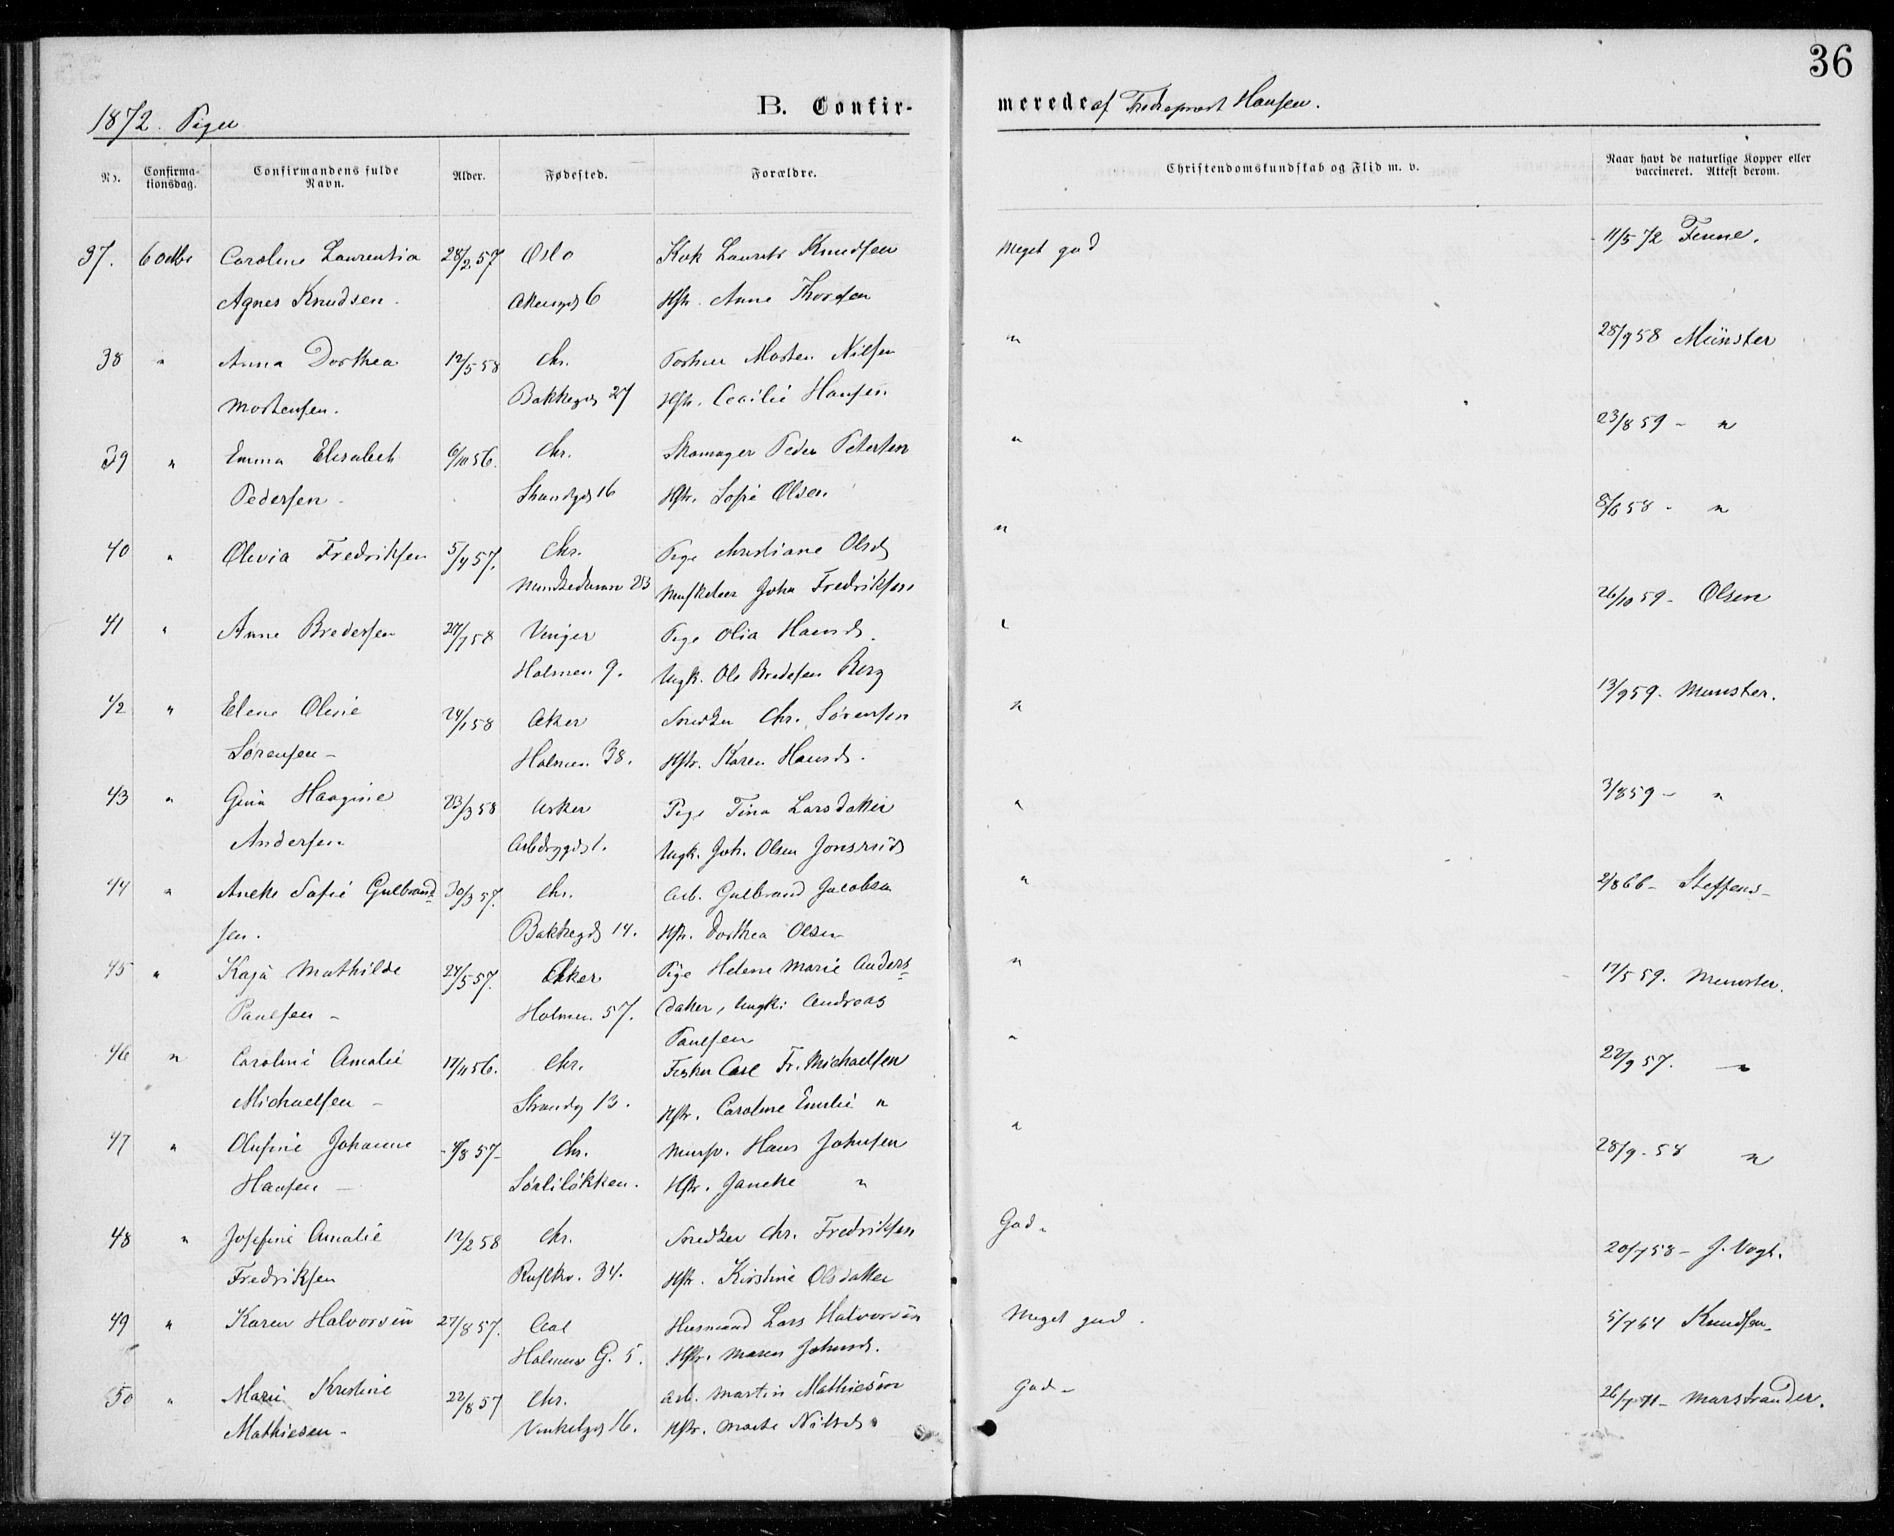 36
1872. Piger B. Confirmerede af Hansen.
No. Confirmationsdag. Confirmandens fulde Navn. Alder. Fødested. Forældre. Christendomskundskab og Flid m. v. Naar havt de naturlige Kopper eller vaccineret. Attest derom.
37. 6 Octbr Caroline Laurentia 28/2 57 Oslo Kok Laurits Knudsen Meget god 11/5 72
Agnes Knudsen. 6 Hstr. Anne Thoresen
38 " Anna Dorthea 12/5 58 Chr. Morten Nilsen " 28/9 58 Münster
Mortensen. Bakkegd 27 Hstr. Cecilie Hansen
39 " Emma Elisabeth 6/10 56. Chr. Skomager Peder Petersen " 23/8 59 - "
Pedersen - Strandgd 16 Hstr. Sofie Olsen
40 " Olevia Fredriksen 5/4 57. Chr. Pige Christiane Olsd " 8/6 58 - "
John Fredriksen
41 " Anne Bredesen 24/7 58 Vinger Pige Olia Hansd. " 26/10 59 - Olsen
Holmen 9. Ungk. Ole Bredesen Berg
42 " Elene Oline 24/1 58 Aker Snedker Chr. Sørensen " 13/9 59. Münster.
Sørensen - Holmen 38. Hstr. Karen Hansd.
43 " Gina Haagine 23/3 58 Asker Pige Tina Larsdatter " 3/8 59 - "
Andersen Ungk. Joh. Olsen Jonsrud
44 " Anette Sofie Gulbrand- 30/3 57. Chr. Arb. Gulbrand Jacobsen " 2/8 66 - Steffens -
sen. Bakkegd 14. Hstr. Dorthea Olsen
45 " Kaja Mathilde 24/5 57. Aker Pige Helene Marie Anders- " 17/5 59. Münster.
Paulsen - Holmen 57. datter, Ungk: Andreas
Paulsen
46 " Caroline Amalie 17/11 56. Chr. Fisker Carl Fr. Michaelsen " 22/9 57. "
Michaelsen - Strandg 13. Hstr. Caroline Emilie "
47 " Olufine Johanne 9/8 57 - Chr. Hans Johnsen " 28/9 - 58 "
Hansen - Sørliløkken. Hstr. Janeke "
48 " Josefine Amalie 12/2 58 Chr. Snedker Chr. Fredriksen God - 20/7 58 - J. Vogt.
Fredriksen Rusløkv. 34. Hstr. Kirstine Olsdatter
49 " Karen Halvorsen 27/8 57. Aal Husmand Lars Halvorsen Meget god. 5/7 64 Knudsen
Holmens G. 5. Hstr. Maren Johnsd.
50 " Marie Kristine 22/8 57 Chr. Arb. Martin Mathiesen God - 26/7 71 - Marstrander.
Mathiesen - Vinkelgd 16. Hstr. Marte Nilsd "